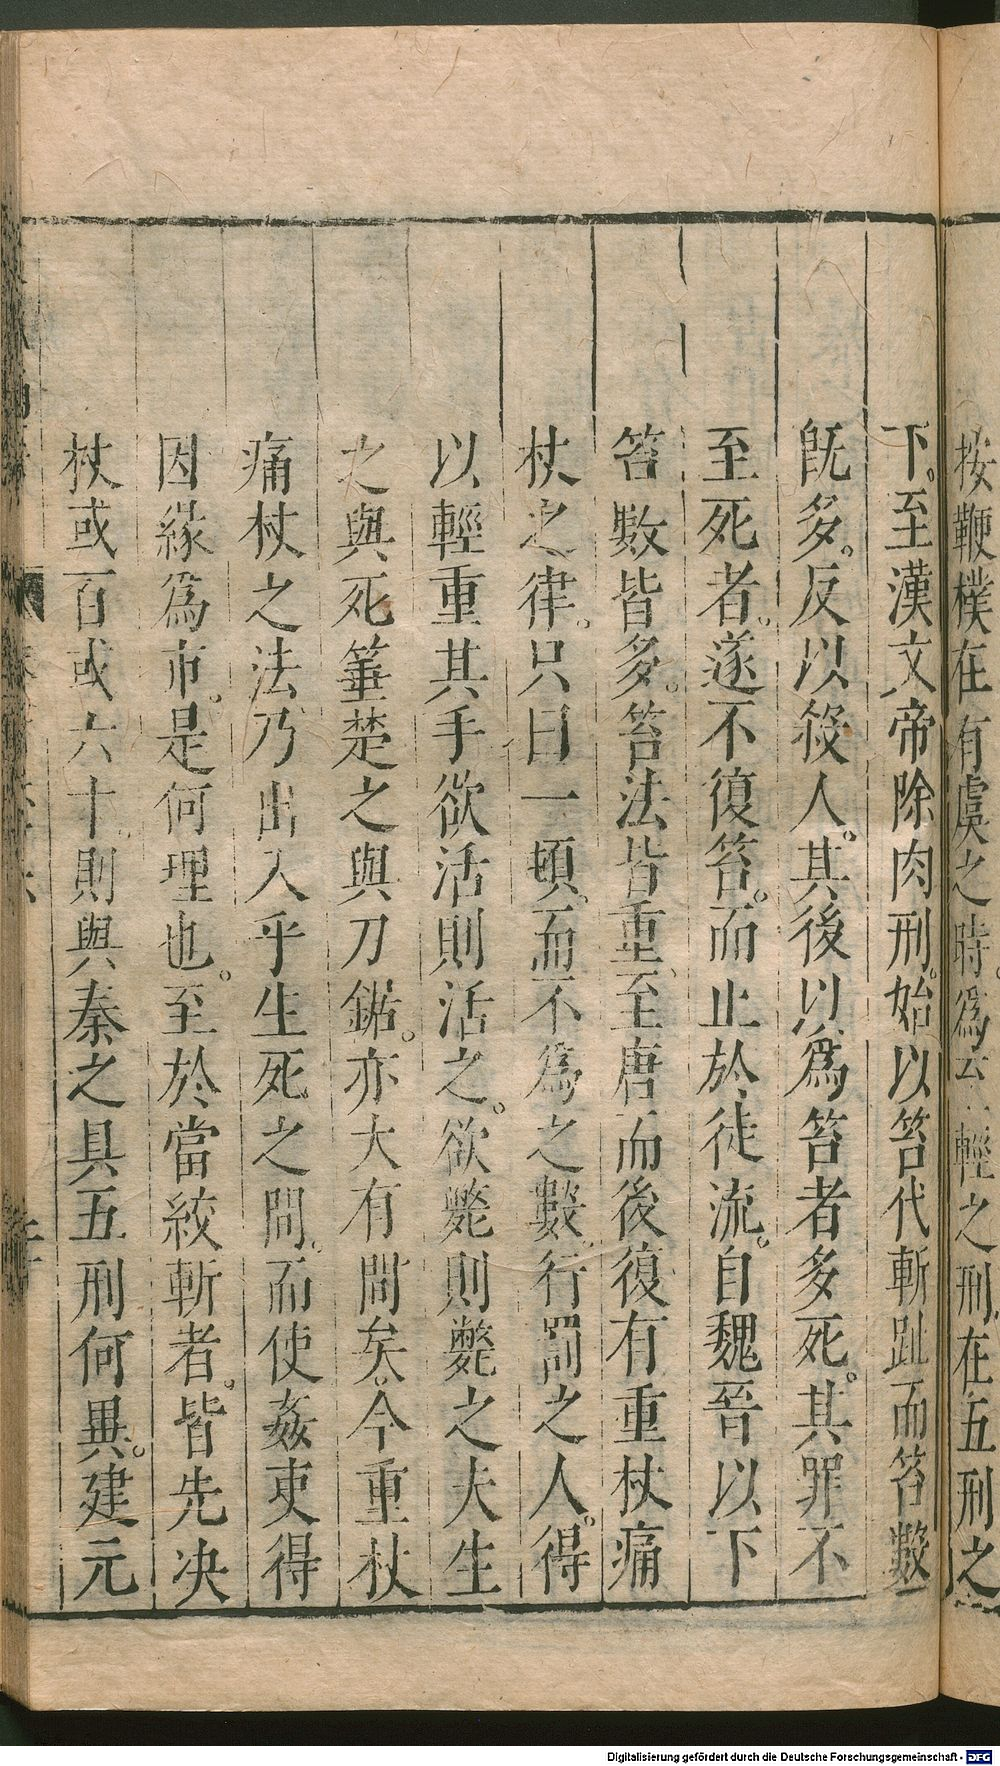 按鞭樸在有虞之時。爲𠫵輕之刑在五刑之
下。至漢文帝除肉刑。始以笞代斬趾而笞數
旣多。反以殺人。其後以爲笞者多死。其罪不
至死者。遂不復笞。而止於徒流。自魏晉以下
笞數皆多。笞法皆重、至唐而後復有重杖痛
杖之律。只曰一頓、而不爲之數、行罰之人。得
以輕重其手欲活則活之。欲斃則斃之夫生
之與死箠楚之與刀鋸。亦大有間矣。今重杖
痛杖之法、乃出入乎生死之間、而使姦吏得
因緣爲市。是何理也。至於當絞斬者。皆先决
杖或百或六十、則與秦之具五刑何異。建元
Digitalisierung gefördert durch die Deutsche Forschungsgemeinschaft - DFG